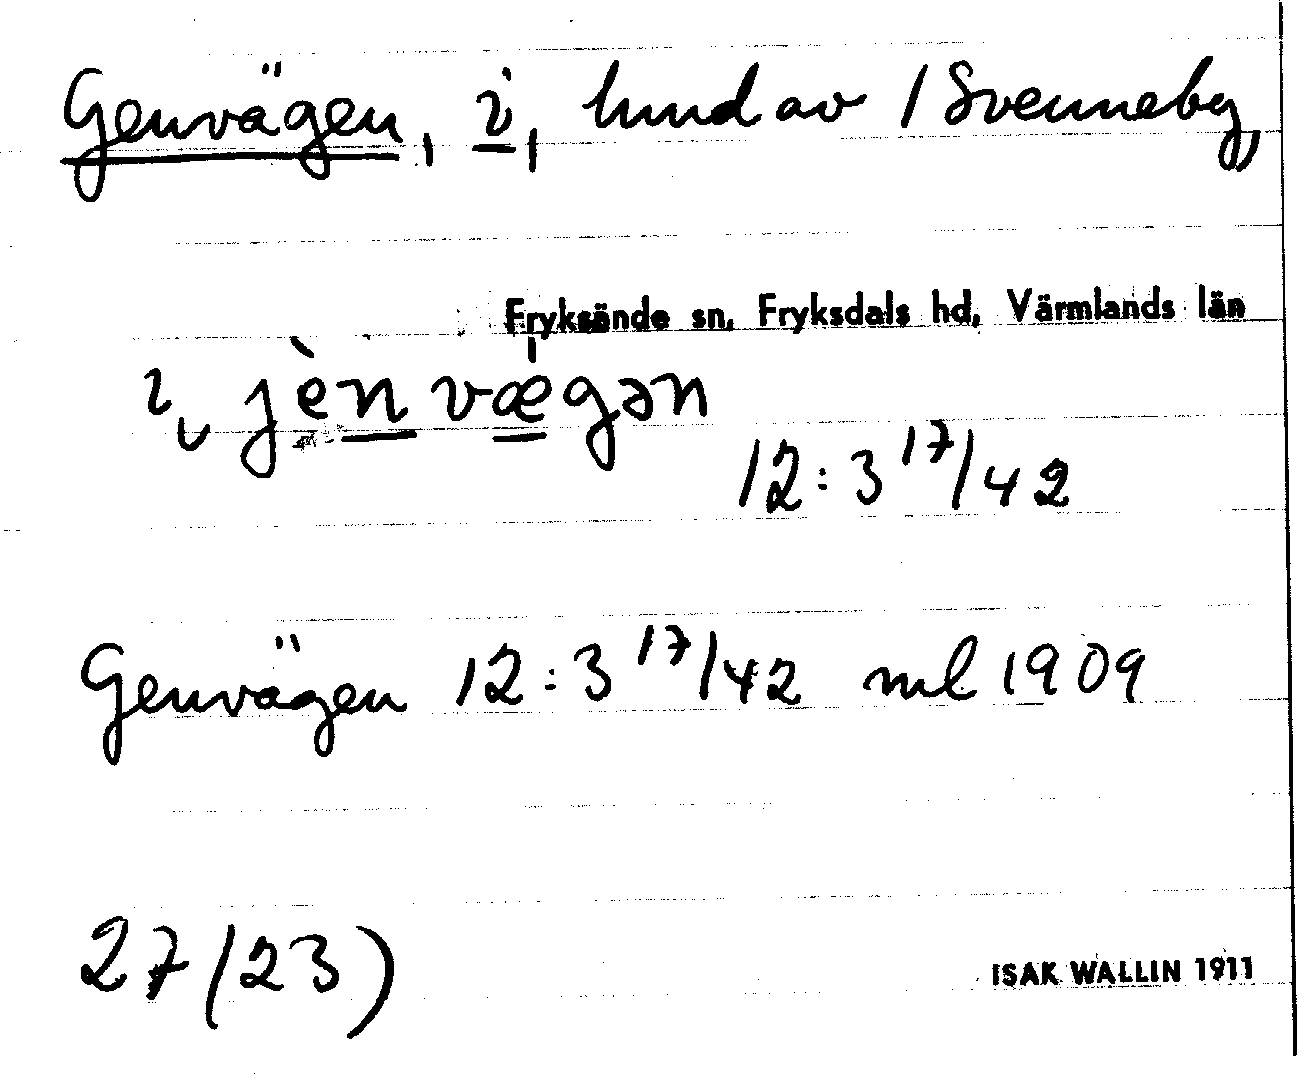 Genvägen, i, hmd av 1 Svenneby,
Fryksände sn, Fryksdals hd, Värmlands län
i, jènvægən
12:3 17/42
Genvägen 12:3 17/42 ml 1909
27(23)
ISAK WALLIN 1911